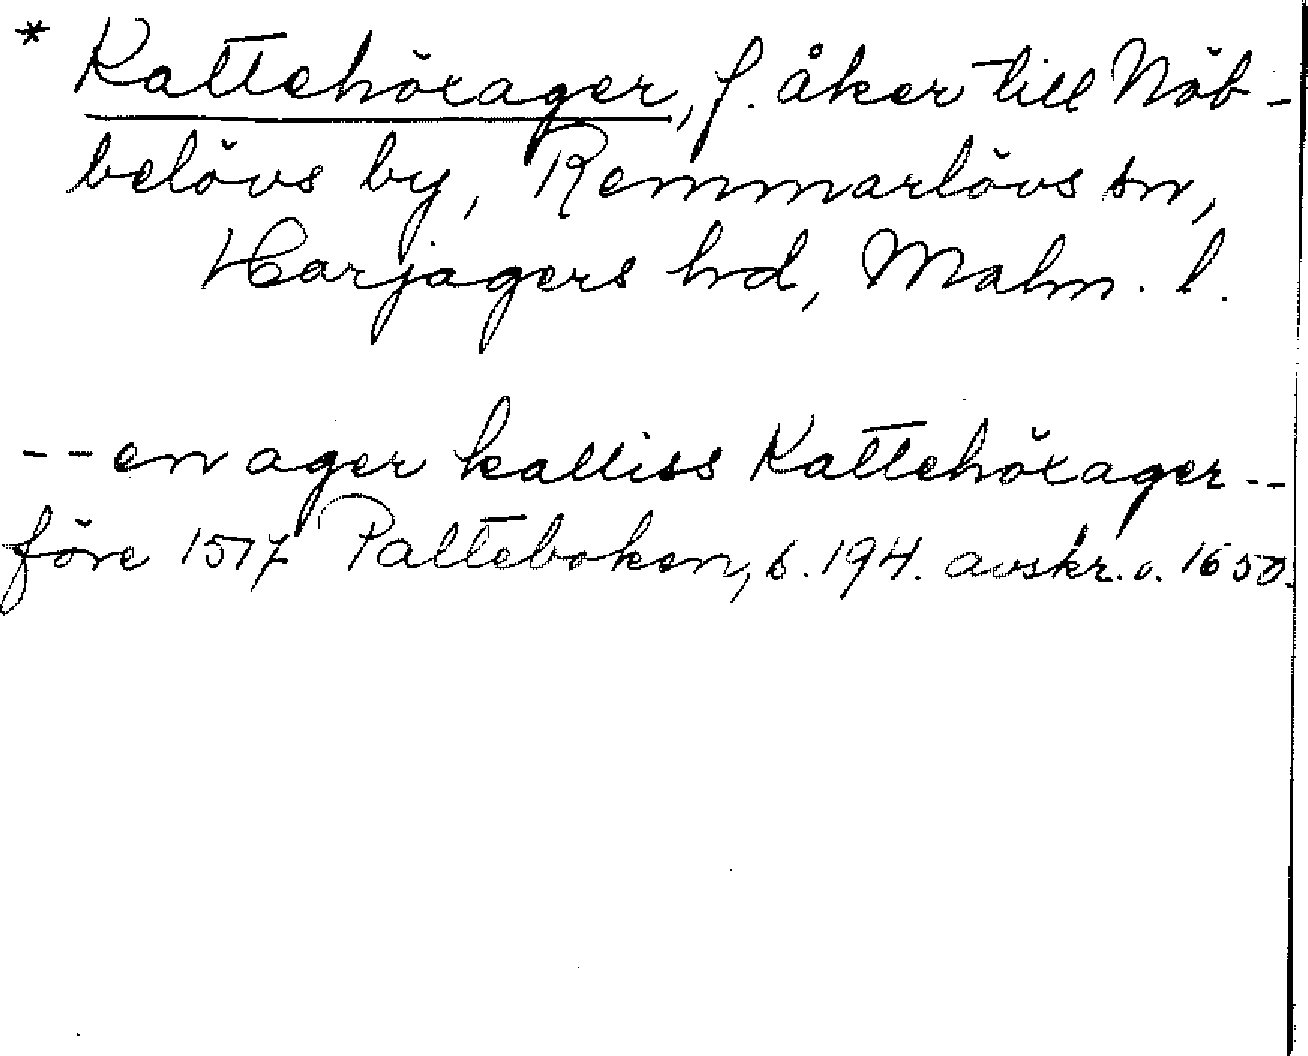 * Kattehöxager, f. åker till Nöb-
belövs by, Remmarlövs sn,
Harjagers hd, Malm. l.
-- en ager kalliss Kattehöxager --
före 1517 Palteboken, s. 194. avskr. o. 1650.